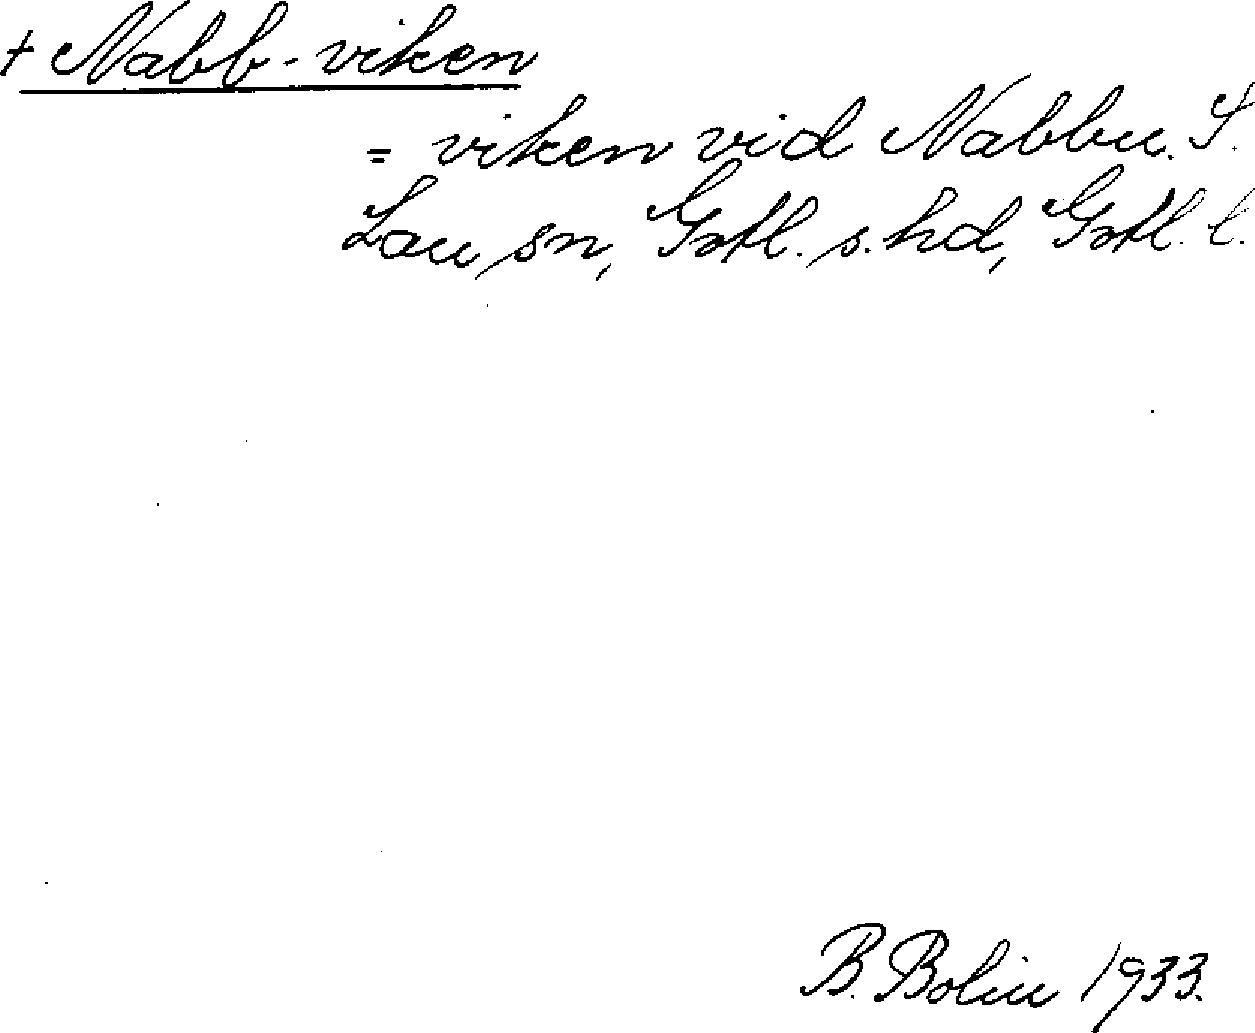 + Nabb-viken
= viken vid Nabbu. I.
Lau sn, Gotl. s. hd, Gotl. l.
B. Bolin 1933.